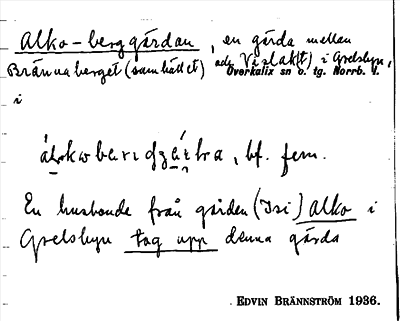 Alko-berggårdan, en gärda mellan
Brännaberget (samhället) och Vislak(t) i Grelsbyn,
Överkalix sn o. tg. Norrb. l.
i
bf. fem.
En husbonde från gården (Isi) Alko i
Grelsbyn tog upp denna gärda
EDVIN BRÄNNSTRÖM 1936.